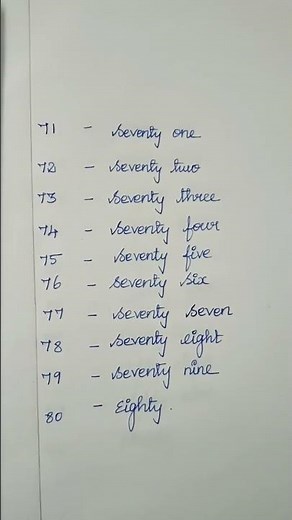 71 - seventy one
72 - seventy two
73 - seventy three
74 - seventy four
75 - seventy five
76 - seventy six
77 - seventy seven
78 - seventy eight
79 - seventy nine
80 - Eighty.